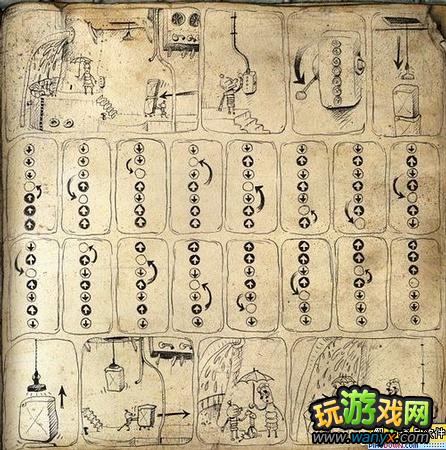 玩游戏网
www.wanyx.com